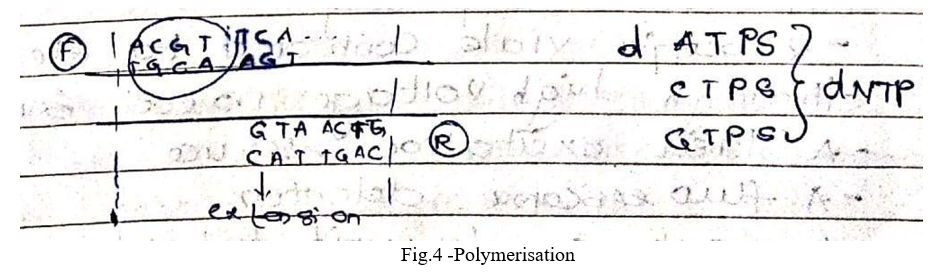 F ACGT
TGCA AGT
d ATPS
CTPS
GTPS
dNTP
GTA ACTG
CAT TGAC
R
extension
Fig.4 -Polymerisation